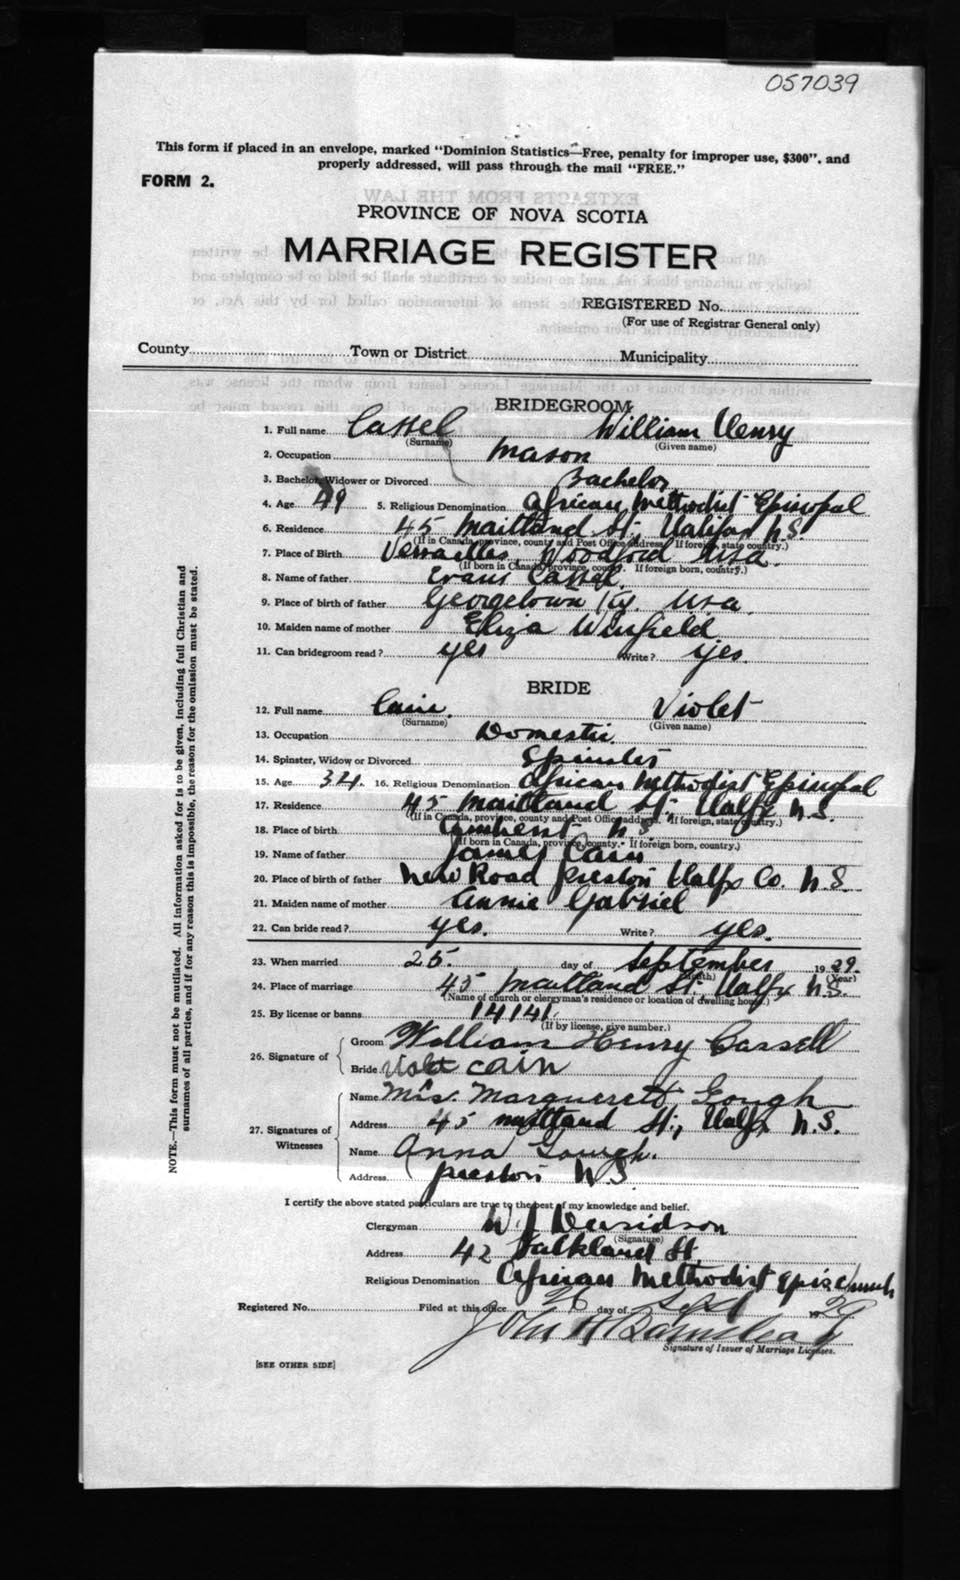 057039
This form if placed in an envelope, marked "Dominion Statistics—Free, penalty for improper use, $300", and
properly addressed, will pass through the mail "FREE."
FORM 2.
PROVINCE OF NOVA SCOTIA
MARRIAGE REGISTER
REGISTERED No.
(For use of Registrar General only)
County Town or District Municipality
BRIDEGROOM
1. Full name Cassel William Henry
(Surname) (Given name)
2. Occupation Mason
3. Bachelor, Widower or Divorced Bachelor
4. Age 49 5. Religious Denomination African Methodist Episcopal
6. Residence 45 Maitland St, Halifax N.S.
(If in Canada, province, county and Post Office address. If foreign, state country.)
7. Place of Birth Versailles Woodford USA.
(If born in Canada, province, county. If foreign born, country.)
8. Name of father Evans Cassel.
9. Place of birth of father Georgetown Ky. USA.
10. Maiden name of mother Eliza Winfield
11. Can bridegroom read? yes Write? yes.
BRIDE
12. Full name Cain. Violet
(Surname) (Given name)
13. Occupation Domestic.
14. Spinster, Widow or Divorced Spinster
15. Age 34. 16. Religious Denomination African Methodist Episcopal
17. Residence 45 Maitland St, Halfx N.S.
(If in Canada, province, county and Post Office address. If foreign, state country.)
18. Place of birth Amherst N S
(If born in Canada, province, county. If foreign born, country.)
19. Name of father James Cain
20. Place of birth of father New Road Preston Halfx Co. N.S.
21. Maiden name of mother Annie Gabriel
22. Can bride read? yes. Write? yes.
23. When married 25. day of September 1929.
(Month) (Year)
24. Place of marriage 45 Maitland St. Halfx N.S.
(Name of church or clergyman's residence or location of dwelling house.)
25. By license or banns 14141.
(If by license, give number.)
26. Signature of Groom William Henry Cassell
Bride Violet Cain
27. Signatures of Witnesses
Name Mrs. Marguerett Gough
Address 45 Maitland St., Halfx N.S.
Name Anna Gough.
Address Preston N.S
I certify the above stated particulars are true to the best of my knowledge and belief.
Clergyman W. J Davidson
(Signature)
Address 42 Falkland St.
Religious Denomination African Methodist Epis Church
Registered No. Filed at this office 26 day of Sept 1929
John R
Signature of Issuer of Marriage Licenses.
[SEE OTHER SIDE]
NOTE.—This form must not be mutilated. All information asked for is to be given, including full Christian and
surnames of all parties, and if for any reason this is impossible, the reason for the omission must be stated.